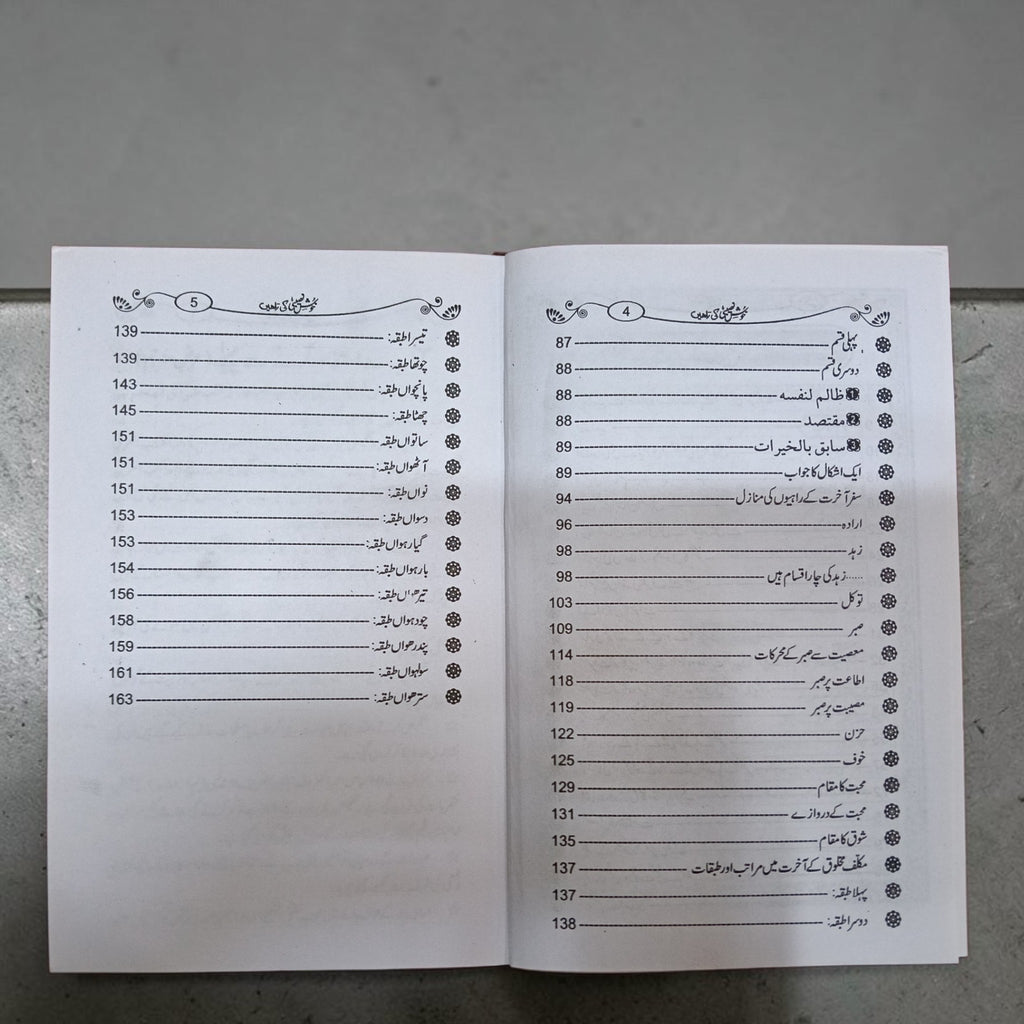 4
خوش نصیبی کی راہیں
پہلی قسم 87
دوسری قسم 88
1 ظالم لنفسه 88
2 مقتصد 88
3 سابق بالخیرات 89
ایک اشکال کا جواب 89
سفر آخرت کے راہیوں کی منازل 94
ارادہ 96
زہد 98
......زہد کی چار اقسام ہیں 98
توکل 103
صبر 109
معصیت سے صبر کے محرکات 114
اطاعت پر صبر 118
مصیبت پر صبر 119
حزن 122
خوف 125
محبت کا مقام 129
محبت کے دروازے 131
شوق کا مقام 135
مکلّف مخلوق کے آخرت میں مراتب اور طبقات 137
پہلا طبقہ: 137
دوسرا طبقہ: 138
5
خوش نصیبی کی راہیں
تیسرا طبقہ: 139
چوتھا طبقہ: 139
پانچواں طبقہ: 143
چھٹا طبقہ: 145
ساتواں طبقہ 151
آٹھواں طبقہ: 151
نواں طبقہ: 151
دسواں طبقہ: 153
گیارہواں طبقہ: 153
بارہواں طبقہ: 154
تیرھواں طبقہ: 156
چودہواں طبقہ: 158
پندرھواں طبقہ: 159
سولہواں طبقہ: 161
سترھواں طبقہ: 163